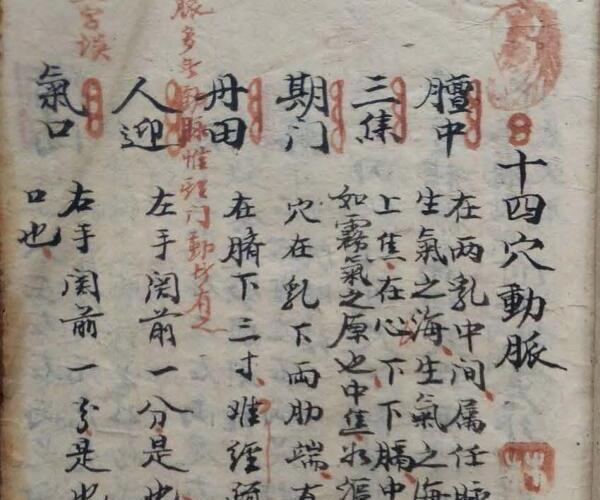 十四穴動脈
膻中
在两乳中间属任脉
生氣之海生氣之海
三焦
上焦在心下下膈中
如霧氣之原也中焦
期门
穴在乳下两肋端
丹田
在臍下三寸难经
脉惟期门動皆有之
人迎
左手関前一分是也
氣口
右手関前一分是也
口也